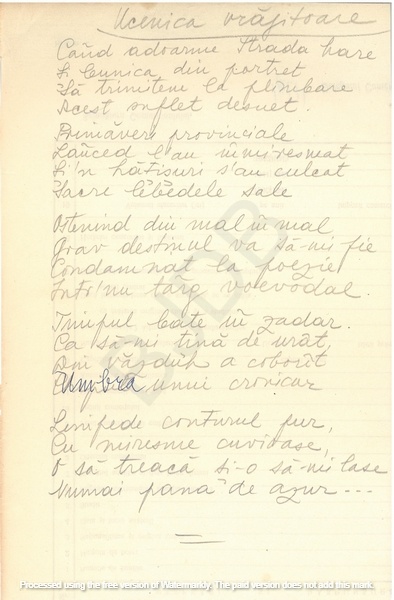 Ucenica vrăjitoare
Când adoarme Strada Mare
Și bunica din portret
Să trimitem la plimbare
Acest suflet desuet.
Primăveri provinciale
Lânced l'au înmiresmat
Și'n hățisuri s'au culcat
Sacre lebedele sale
Ostenind din mal în mal
Grav destinul va să-mi fie
Condamnat la poezie
Într'nu târg voevodal.
Timpul bate în zadar.
Ca să-mi țină de urât,
Din văzduh a coborît
Umbra unui cronicar
Limpede conturul pur,
Cu miresme cuvioase,
O să treacă și-o să-mi lase
Numai pana de azur...
BVDB
Processed using the free version of Watermarkly. The paid version does not add this mark.